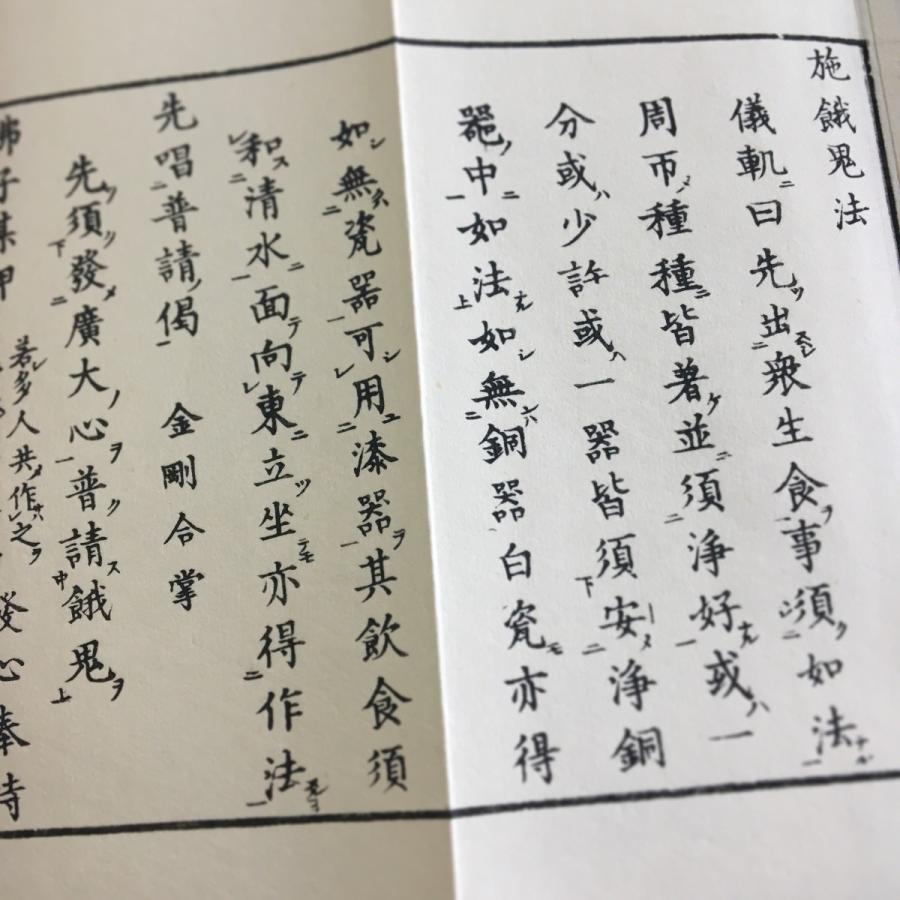 施餓鬼法
儀軌曰先出衆生食事須如法
周帀種種皆著並須淨好或一
分或少許或一器皆須安淨銅
器中如法如無銅器白瓷亦得
如無瓷器可用漆器其飲食須
和清水面向東立坐亦得作法
先唱普請偈 金剛合掌
先須發廣大心普請餓鬼
子某甲 若多人共作之 發心奉持